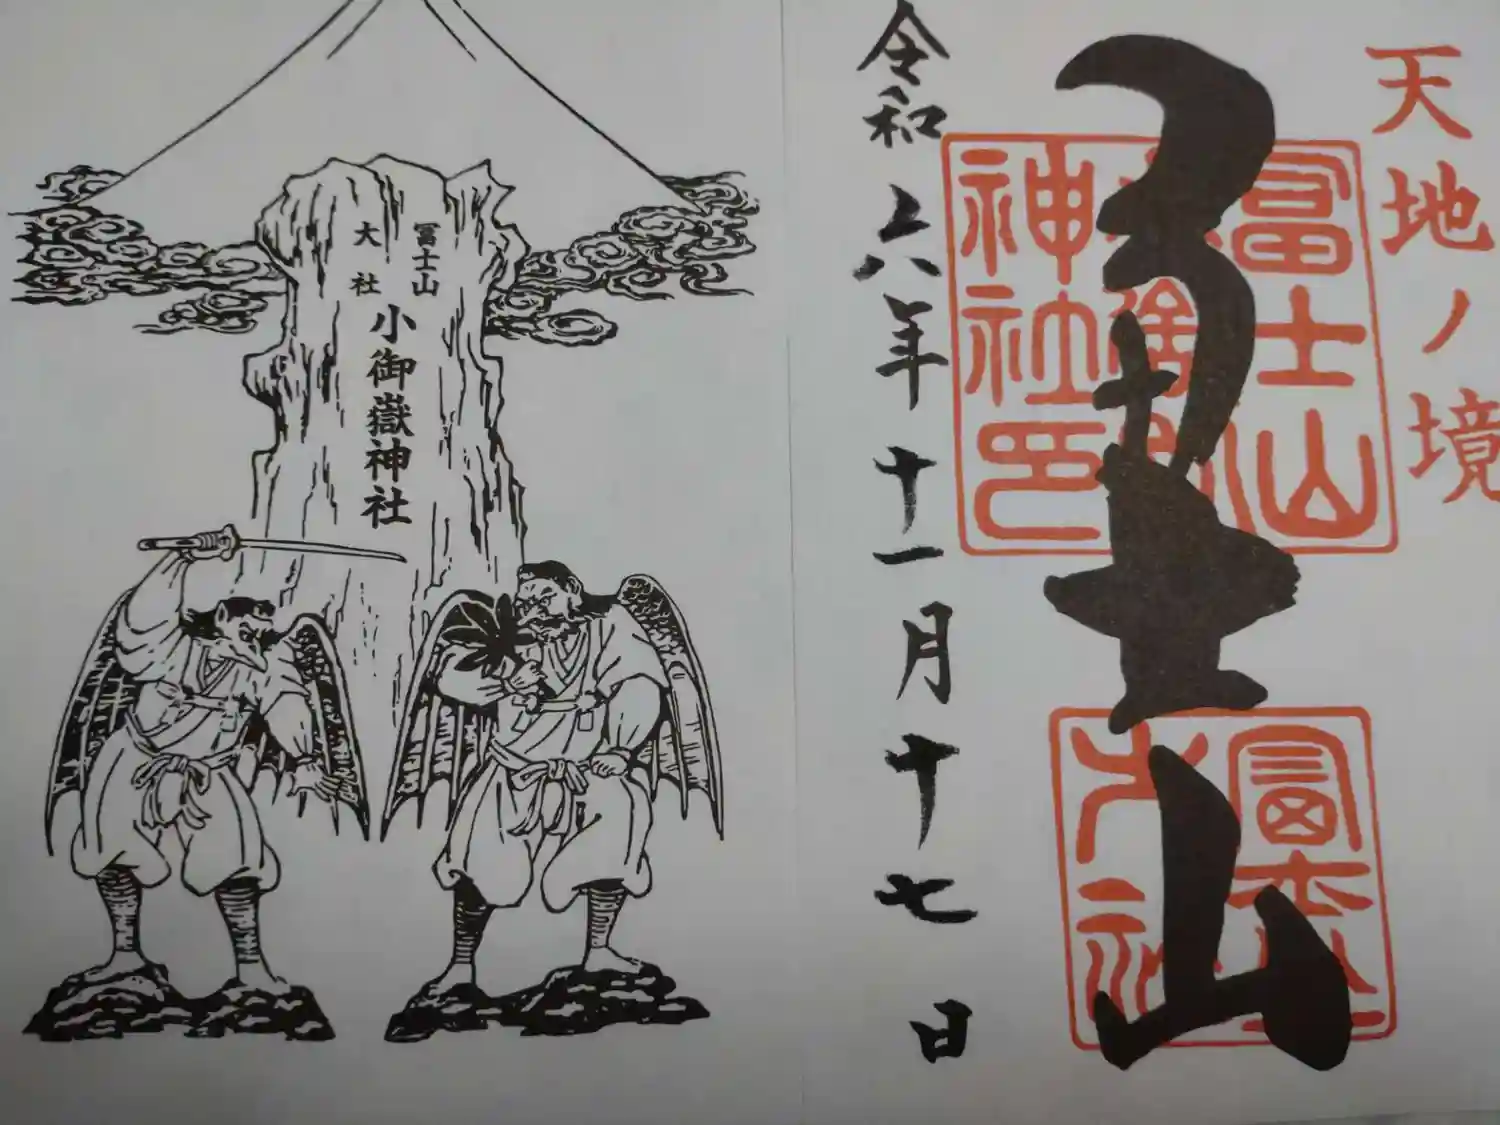 天地ノ境
冨士山
冨士山小御嶽
神社印
冨士山
大社
令和六年十一月十七日
冨士山
大社
小御嶽神社